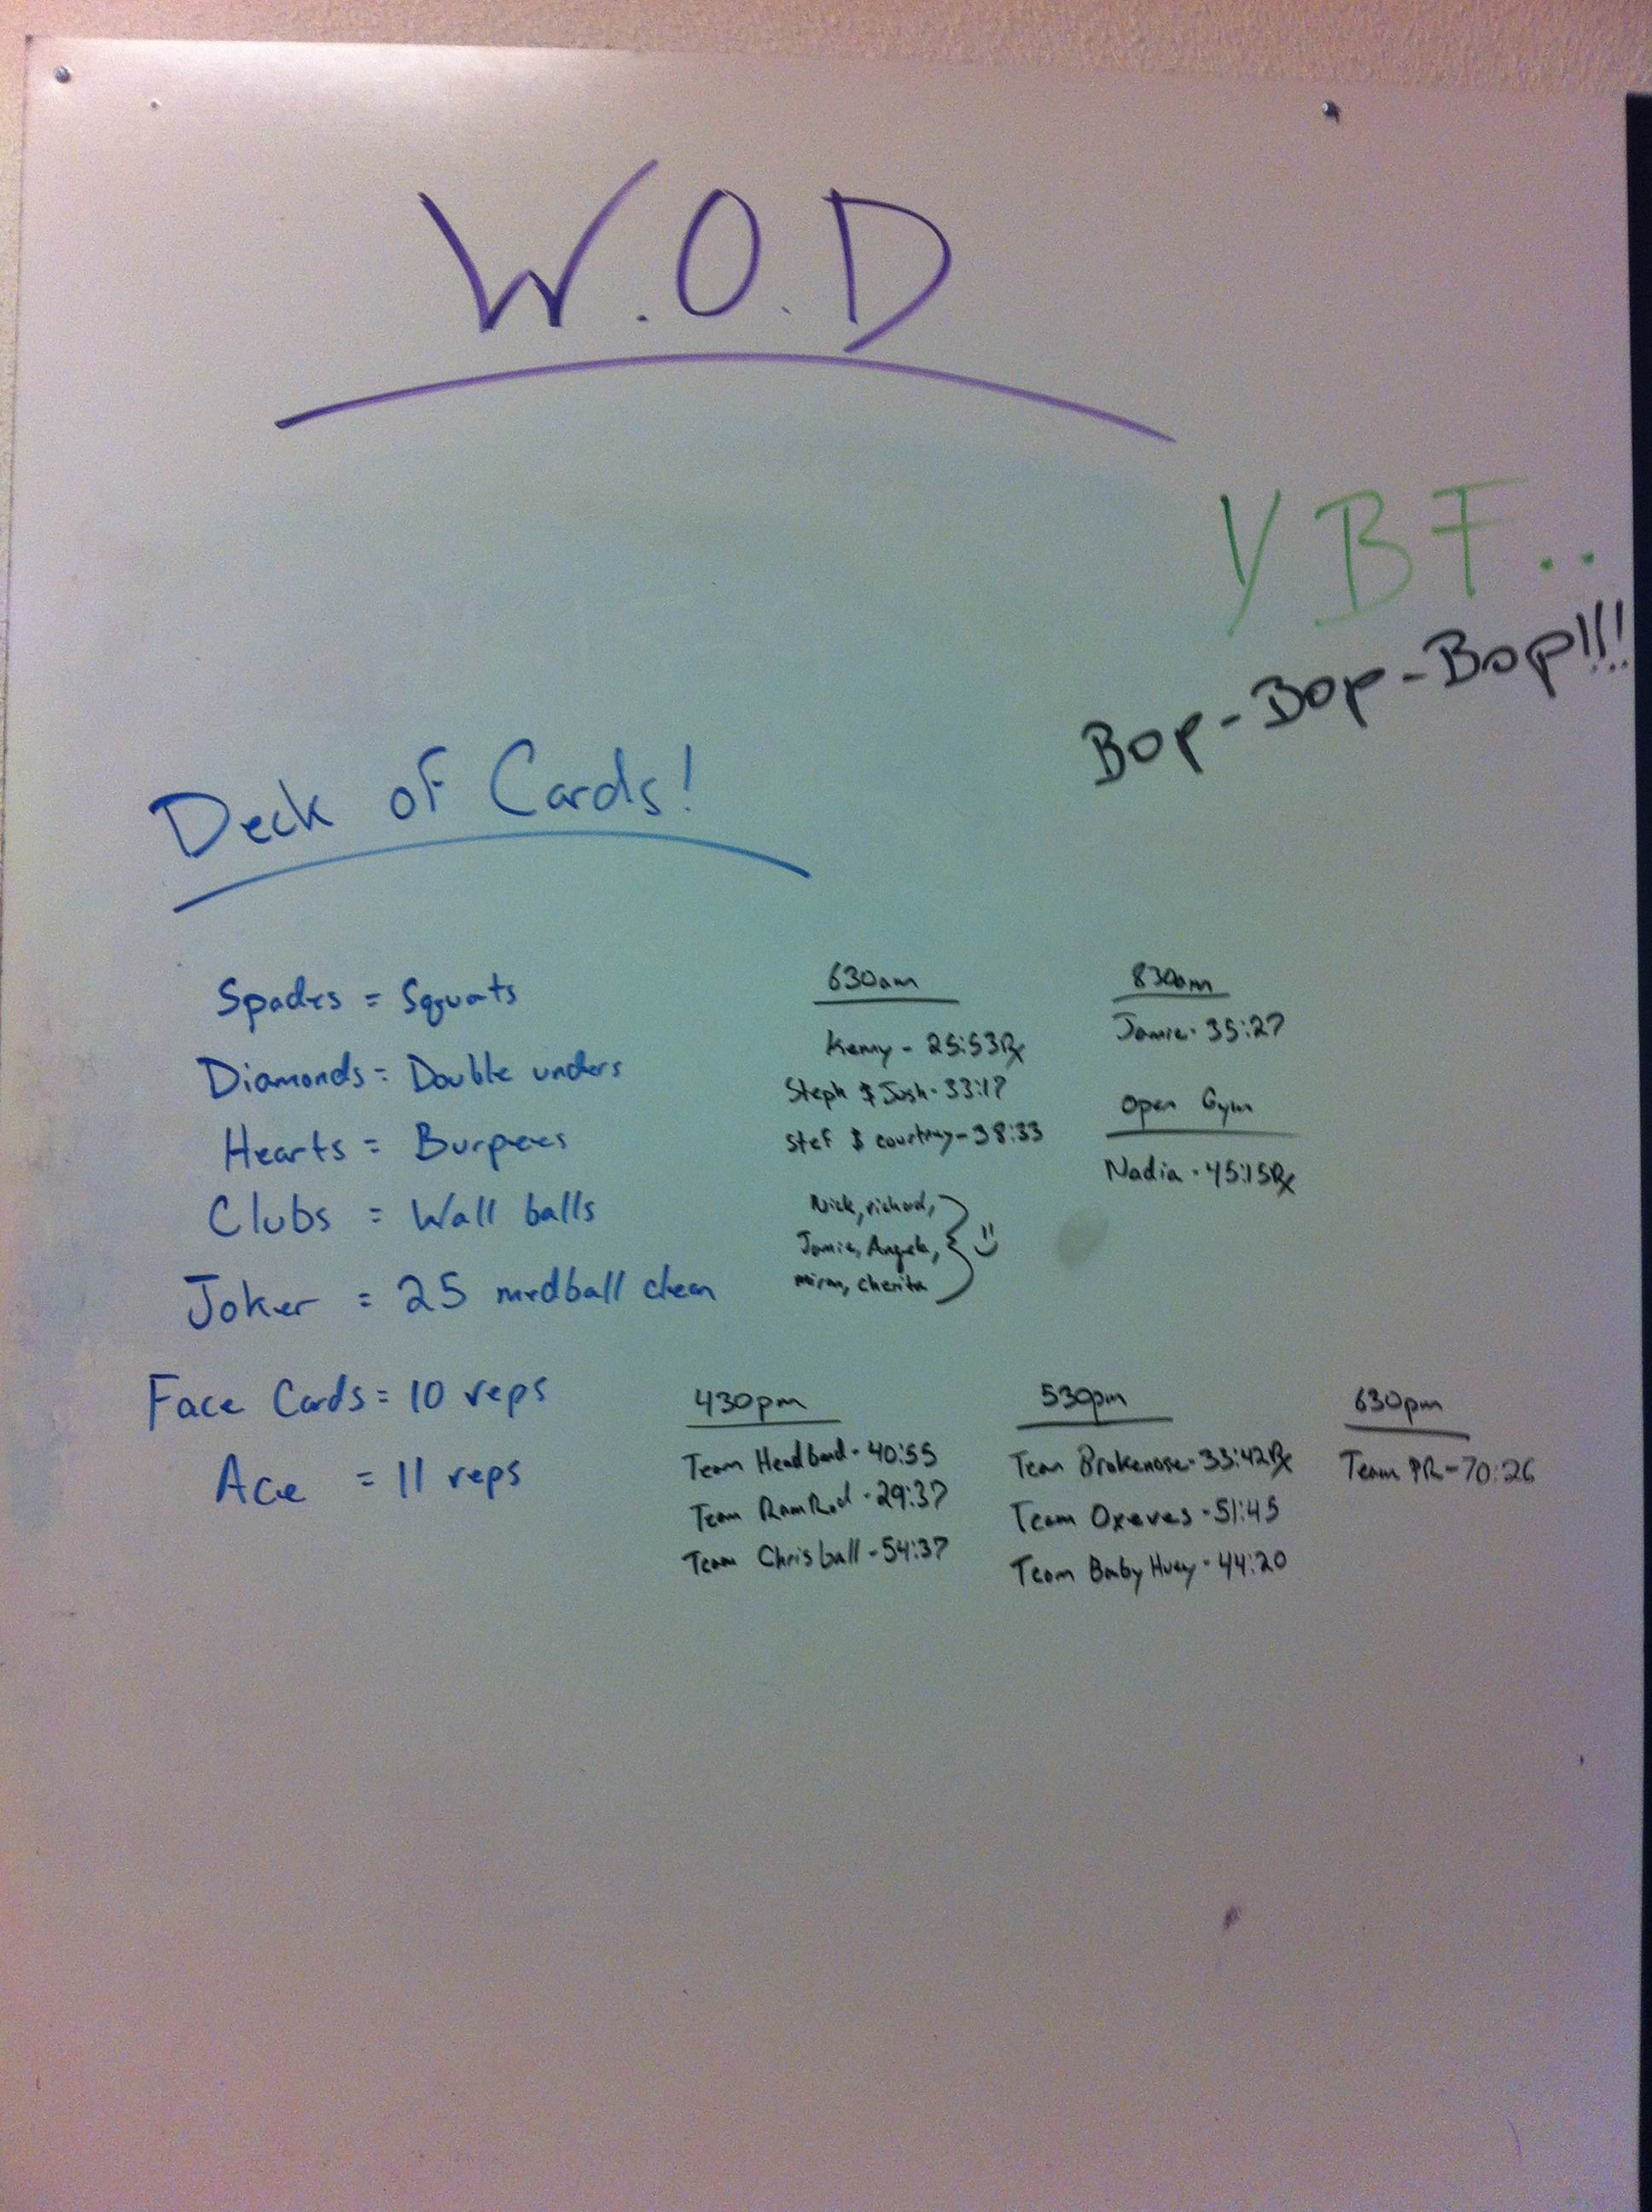 W.O.D
YBF..
Bop-Bop-Bop!!!
Deck of Cards!
Spades = Squats
Diamonds = Double unders
Hearts = Burpees
Clubs = Wall balls
Joker = 25 medball clean
Face Cards = 10 reps
Ace = 11 reps
630am
Kenny - 25:53Rx
Steph & Josh - 33:17
Stef & courtney - 38:33
Nick, richard,
Jamie, Angela,
cherita
830am
Jamie - 35:27
Open Gym
Nadia - 45:15Rx
430pm
Team Headband - 40:55
Team RamRod - 29:37
Team Chrisball - 54:37
530pm
Team Brokenose - 33:42Rx
Team Oxeves - 51:45
Team Baby Huey - 44:20
630pm
Team PR - 70:26